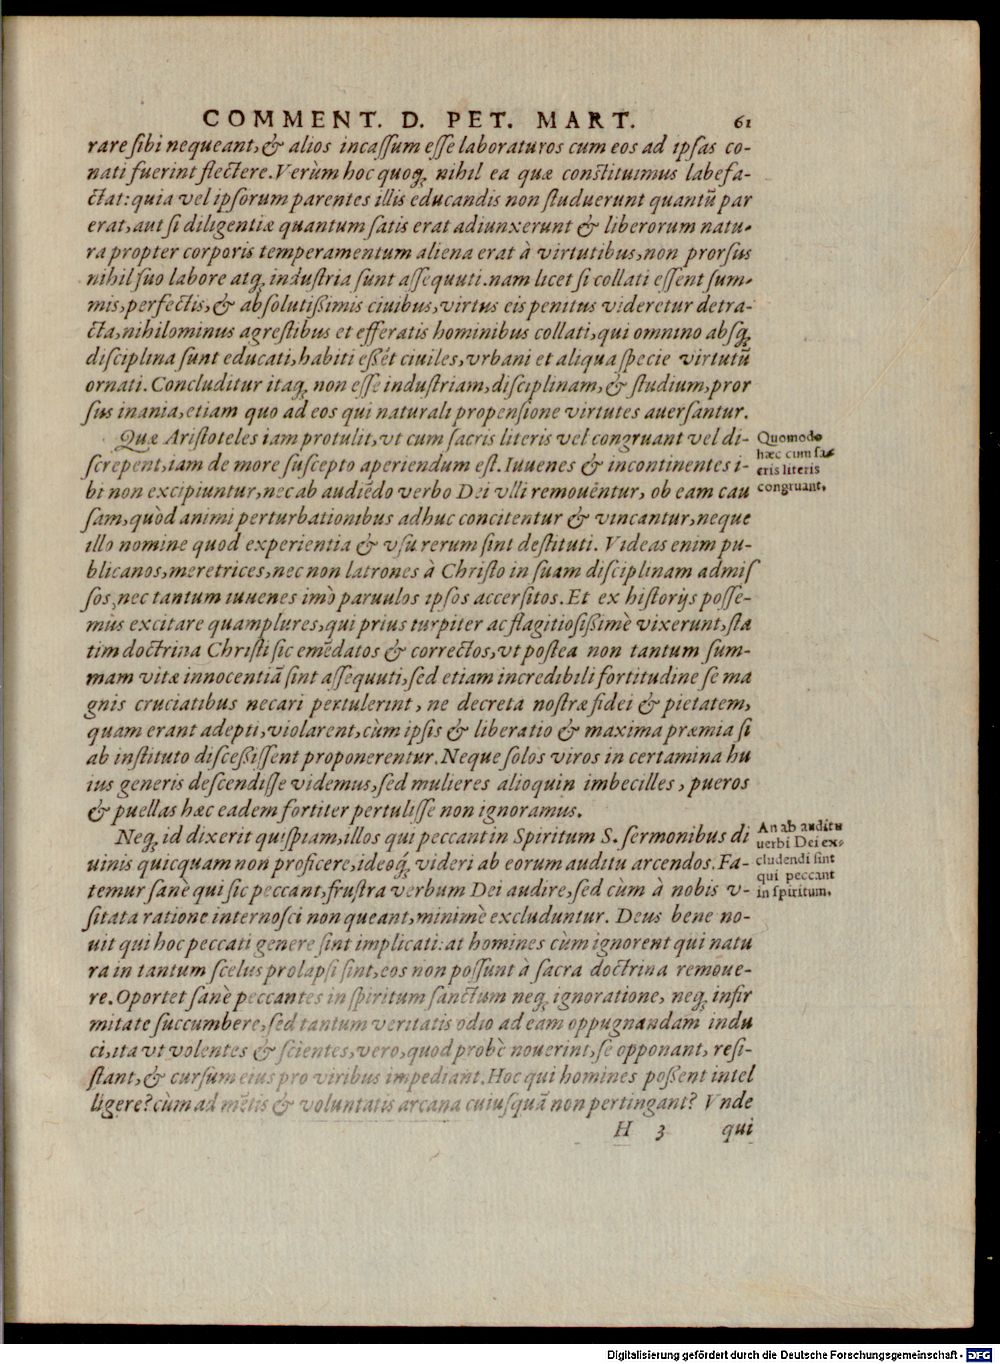 COMMENT. D. PET. MART. 61
rare sibi nequeant, & alios incassum esse laboraturos cum eos ad ipsas co-
nati fuerint flectere. Verùm hoc quoq; nihil ea quæ constituimus labefa-
ctat: quia vel ipsorum parentes illis educandis non studuerunt quantũ par
erat, aut si diligentiæ quantum satis erat adiunxerunt & liberorum natu-
ra propter corporis temperamentum aliena erat à virtutibus, non prorsus
nihil suo labore atq; industria sunt assequuti. nam licet si collati essent sum-
mis, perfectis, & absolutißimis ciuibus, virtus eis penitus videretur detra-
cta, nihilominus agrestibus et efferatis hominibus collati, qui omnino absq;
disciplina sunt educati, habiti eßēt ciuiles, vrbani et aliqua specie virtutũ
ornati. Concluditur itaq; non esse industriam, disciplinam, & studium, pror
sus inania, etiam quo ad eos qui naturali propensione virtutes auersantur.
Quæ Aristoteles iam protulit, vt cum sacris literis vel congruant vel di-
screpent, iam de more suscepto aperiendum est. Iuuenes & incontinentes i-
bi non excipiuntur, nec ab audiēdo verbo Dei vlli remouentur, ob eam cau
sam, quòd animi perturbationibus adhuc concitentur & vincantur, neque
illo nomine quod experientia & vsu rerum sint destituti. Videas enim pu-
blicanos, meretrices, nec non latrones à Christo in suam disciplinam admis
sos, nec tantum iuuenes imò paruulos ipsos accersitos. Et ex historijs posse-
mus excitare quamplures, qui prius turpiter ac flagitiosißimè vixerunt, sta
tim doctrina Christi sic emēdatos & correctos, vt postea non tantum sum-
mam vitæ innocentiã sint assequuti, sed etiam incredibili fortitudine se ma
gnis cruciatibus necari pertulerint, ne decreta nostræ fidei & pietatem,
quam erant adepti, violarent, cùm ipsis & liberatio & maxima præmia si
ab instituto disceßissent proponerentur. Neque solos viros in certamina hu
ius generis descendisse videmus, sed mulieres alioquin imbecilles, pueros
& puellas hæc eadem fortiter pertulisse non ignoramus.
Neq; id dixerit quispiam, illos qui peccant in Spiritum S. sermonibus di
uinis quicquam non proficere, ideoq; videri ab eorum auditu arcendos. Fa-
temur sanè qui sic peccant, frustra verbum Dei audire, sed cùm à nobis v-
sitata ratione internosci non queant, minimè excluduntur. Deus bene no-
uit qui hoc peccati genere sint implicati: at homines cùm ignorent qui natu
ra in tantum scelus prolapsi sint, eos non possunt à sacra doctrina remoue-
re. Oportet sanè peccantes in spiritum sanctum neq; ignoratione, neq; infir
mitate succumbere, sed tantum veritatis odio ad eam oppugnandam indu
ci, ita vt volentes & scientes, vero, quod probè nouerint, se opponant, resi-
stant, & cursum eius pro viribus impediant. Hoc qui homines poßent intel
ligere? cùm ad mētis & voluntatis arcana cuiusquã non pertingant? Vnde
H 3 qui
Quomodo
hæc cum sa-
cris literis
congruant.
An ab auditu
uerbi Dei ex-
cludendi sint
qui peccant
in spiritum.
Digitalisierung gefördert durch die Deutsche Forschungsgemeinschaft - DFG